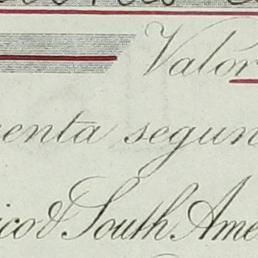 Valor
enta segun
ico & South Ame